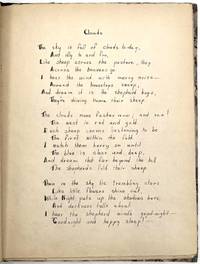 Clouds
The sky is full of clouds to-day,
And idly to and fro,
Like sheep across the pasture, they
Across the heavens go.
I hear the wind with merry noise
Around the housetops sweep,
And dream it is the shepherd boys,
They're driving home their sheep.
The clouds move faster now; and see!
The west is red and gold.
Each sheep seems hastening to be
The first within the fold.
I watch them hurry on until
The blue is clear and deep,
And dream that far beyond the hill
The shepherds fold their sheep.
Then in the sky the trembling stars
Like little flowers shine out,
While Night puts up the shadow bars,
And darkness falls about.
I hear the shepherd winds good-night—
"Good-night and happy sleep!"